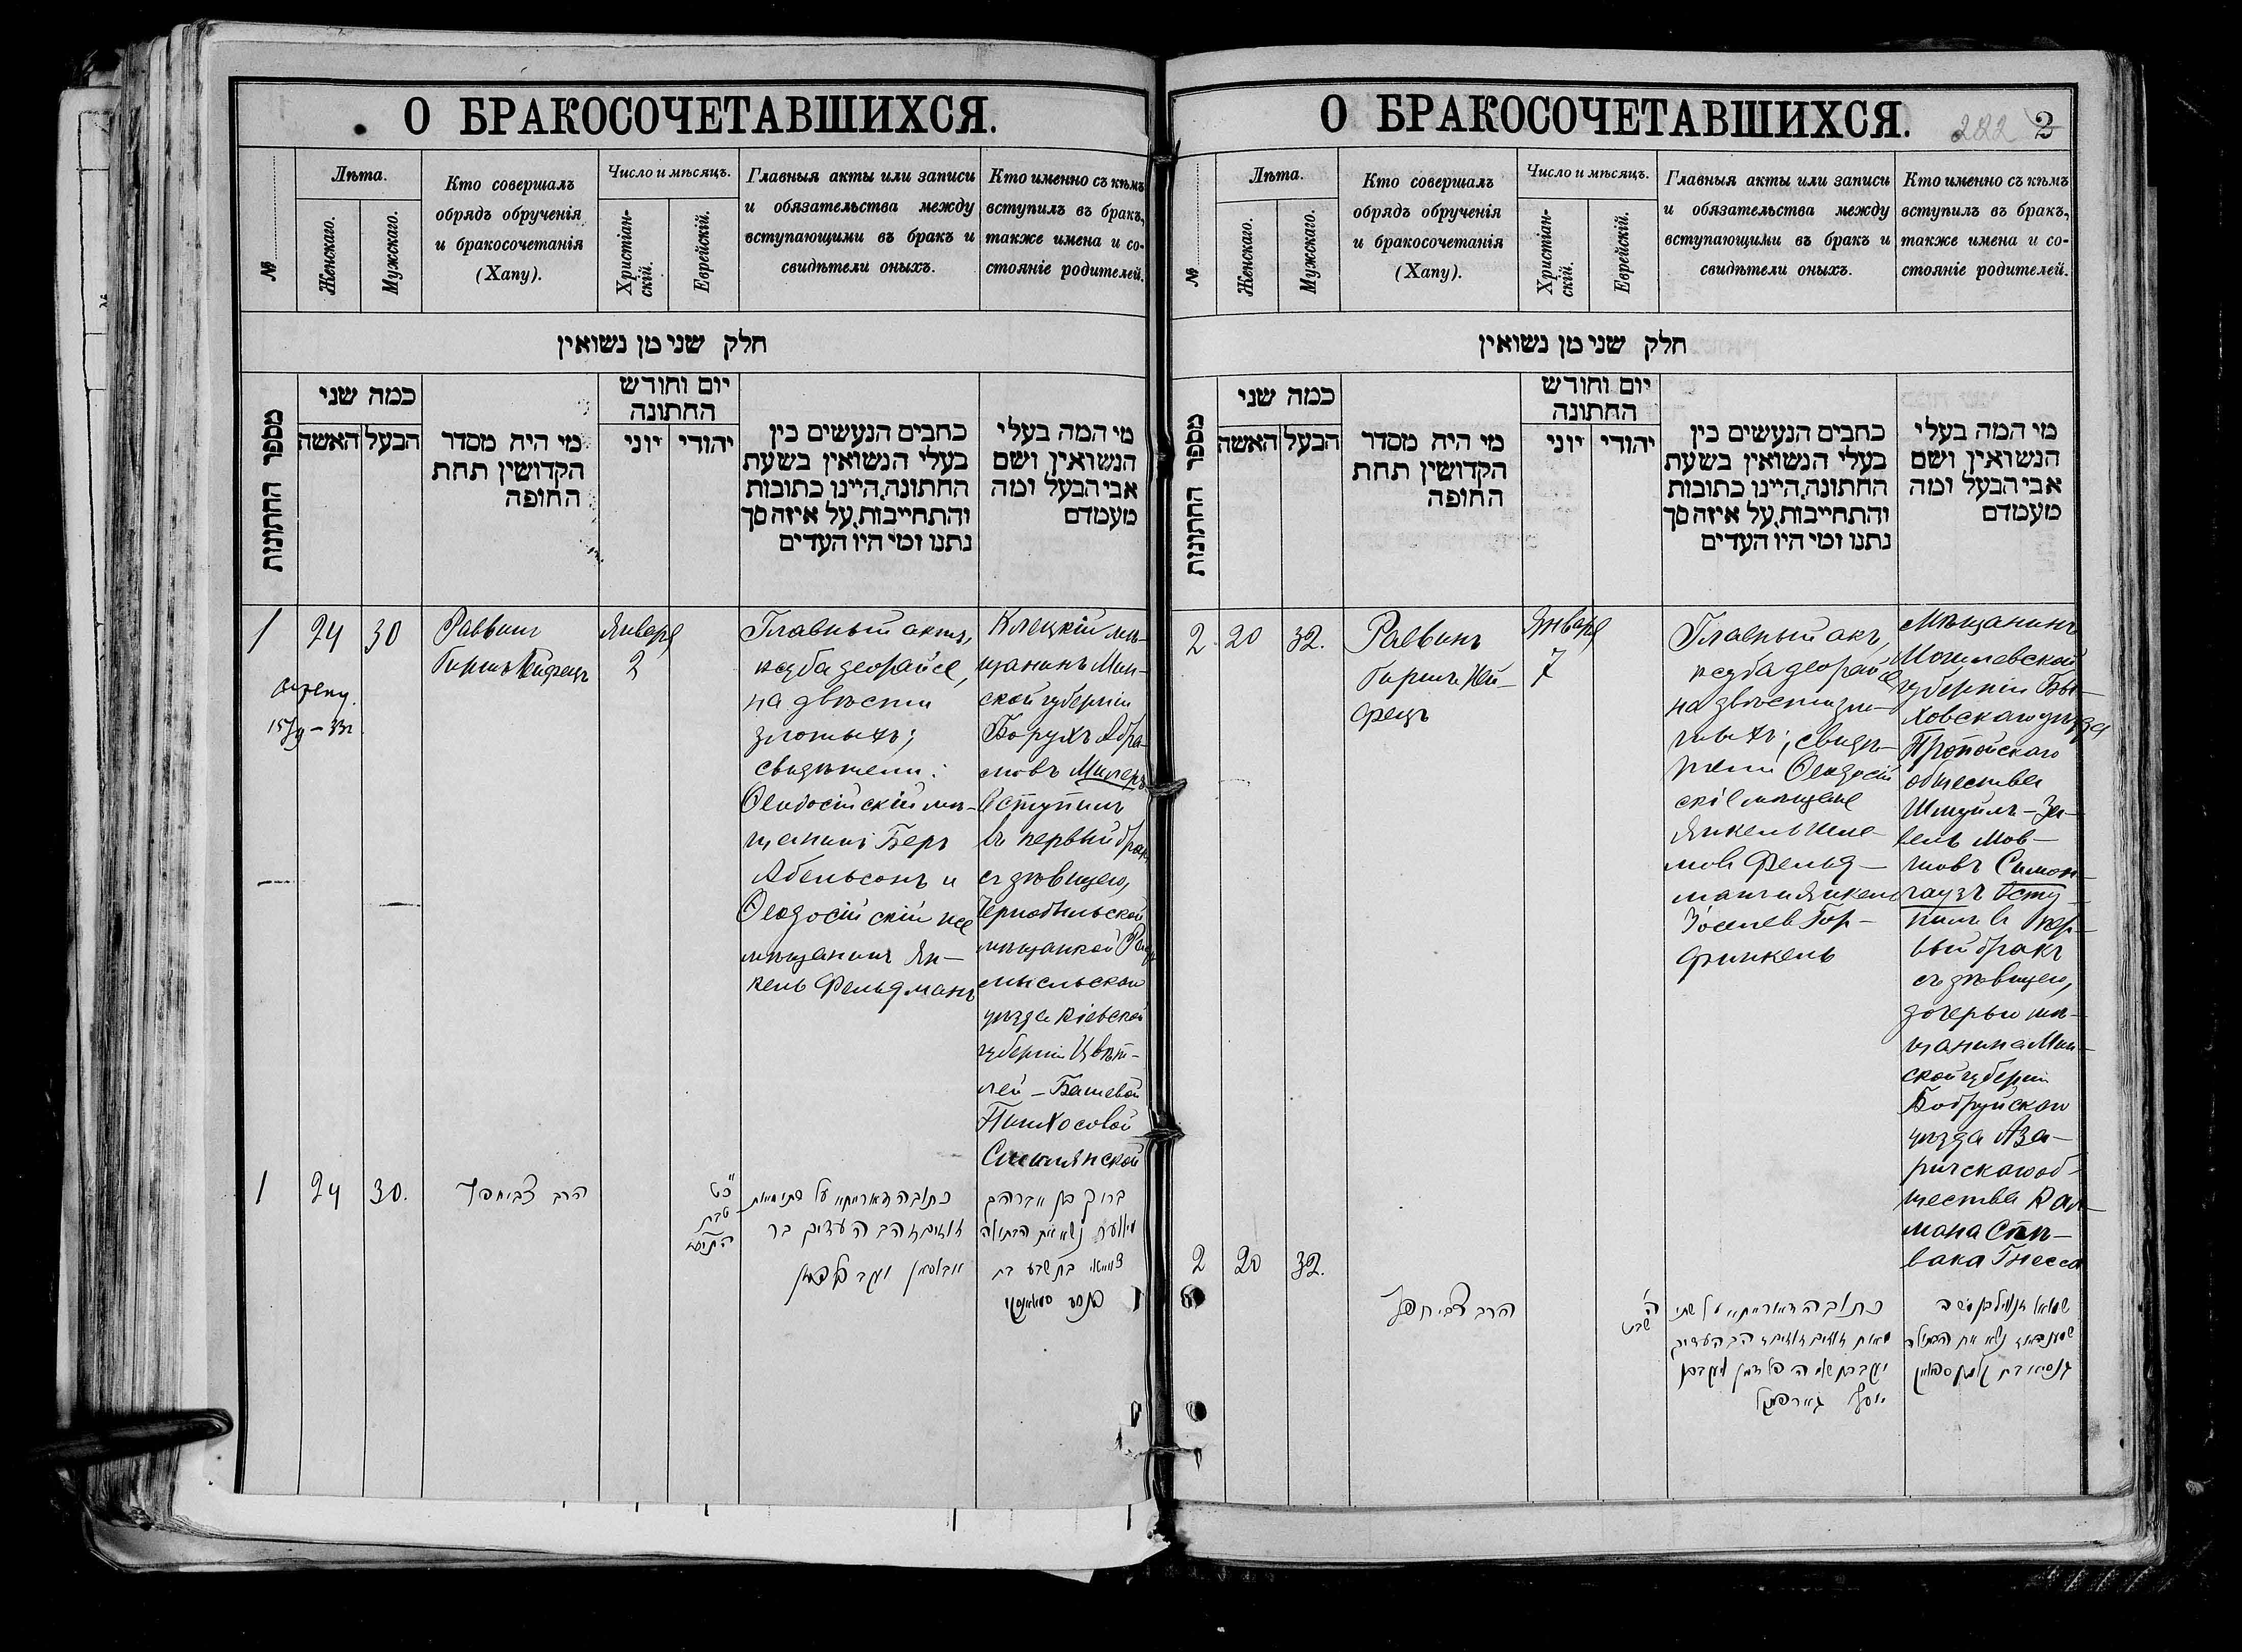 О БРАКОСОЧЕТАВШИХСЯ.
№
Лѣта.
Женскаго.
Мужскаго.
Кто совершалъ
обрядъ обрученія
и бракосочетанія
(Хапу).
Число и мѣсяцъ.
Христіан-
скій.
Еврейскій.
Главныя акты или записи
и обязательства между
вступающими въ бракъ и
свидѣтели оныхъ.
Кто именно съ кѣмъ
вступилъ въ бракъ,
также имена и со-
стояніе родителей.
חלק שני מן נשואין
מספר החתונות
כמה שני
האשה
הבעל
מי היה מסדר
הקדושין תחת
החופה
יום וחודש
החתונה
יוני
יהודי
כתבים הנעשים בין
בעלי הנשואין בשעת
החתונה, היינו כתובות
והתחייבות, על איזה סך
נתנו ומי היו העדים
מי המה בעלי
הנשואין, ושם
אבי הבעל ומה
מעמדם
1
24
30
Раввинъ
Гиршъ
Января
2
Главный актъ,
на двѣсти
злотыхъ;
свидѣтели:
Ѳеодосійскій мѣ-
щанинъ Беръ
Абельсонъ и
Ѳеодосійскій же
мѣщанинъ Ян-
кель Фельдманъ
Клецкій мѣ-
щанинъ Мин-
ской губерніи
Борухъ Абра-
мовъ Милеръ
вступилъ
въ первый бракъ
съ дѣвицею,
Чернобыльской
мѣщанкой
уѣзда Кіевской
губерніи Цвѣт-
лей-Башевой
Пинхосовой
1
24
30.
הרב צבי חפץ
כט
טבת
כתובה דאורייתא על שתי מאות
זוזים זהב העדים בר
ברוך בן אברהם
מילער נשא את הבתולה
בת שבע בת
О БРАКОСОЧЕТАВШИХСЯ.
222 2
№
Лѣта.
Женскаго.
Мужскаго.
Кто совершалъ
обрядъ обрученія
и бракосочетанія
(Хапу).
Число и мѣсяцъ.
Христіан-
скій.
Еврейскій.
Главныя акты или записи
и обязательства между
вступающими въ бракъ и
свидѣтели оныхъ.
Кто именно съ кѣмъ
вступилъ въ бракъ,
также имена и со-
стояніе родителей.
חלק שני מן נשואין
מספר החתונות
כמה שני
האשה
הבעל
מי היה מסדר
הקדושין תחת
החופה
יום וחודש
החתונה
יוני
יהודי
כתבים הנעשים בין
בעלי הנשואין בשעת
החתונה, היינו כתובות
והתחייבות, על איזה סך
נתנו ומי היו העדים
מי המה בעלי
הנשואין, ושם
אבי הבעל ומה
מעמדם
2
20
32.
Раввинъ
Гиршъ
Января
7
Главный акъ,
на двѣсти зло-
тыхъ; свидѣ-
тели Ѳеодосій
скіе мѣщане
Янкель Шле-
мов Фельд-
манъ и Янкель
Іоселев Гор-
финкель
Мѣщанинъ
Могилевской
губерніи Бы-
ховскаго уѣзда
Пропойскаго
общества
Шмуйлъ-За-
вель Мов-
шовъ Симон-
гаузъ всту-
пилъ въ пер-
вый бракъ
съ дѣвицею,
дочерью мѣ-
щанина Мин-
ской губерніи
Бобруйскаго
уѣзда Аза-
ричскаго об-
щества Кал-
мана Спи-
вака Гнесса
2
20
32.
הרב צבי חפץ
ה'
שבט
כתובה דאורייתא על שתי
יעקב בן שלמה פלדמן ויעקב בן
יוסף גארפינקל